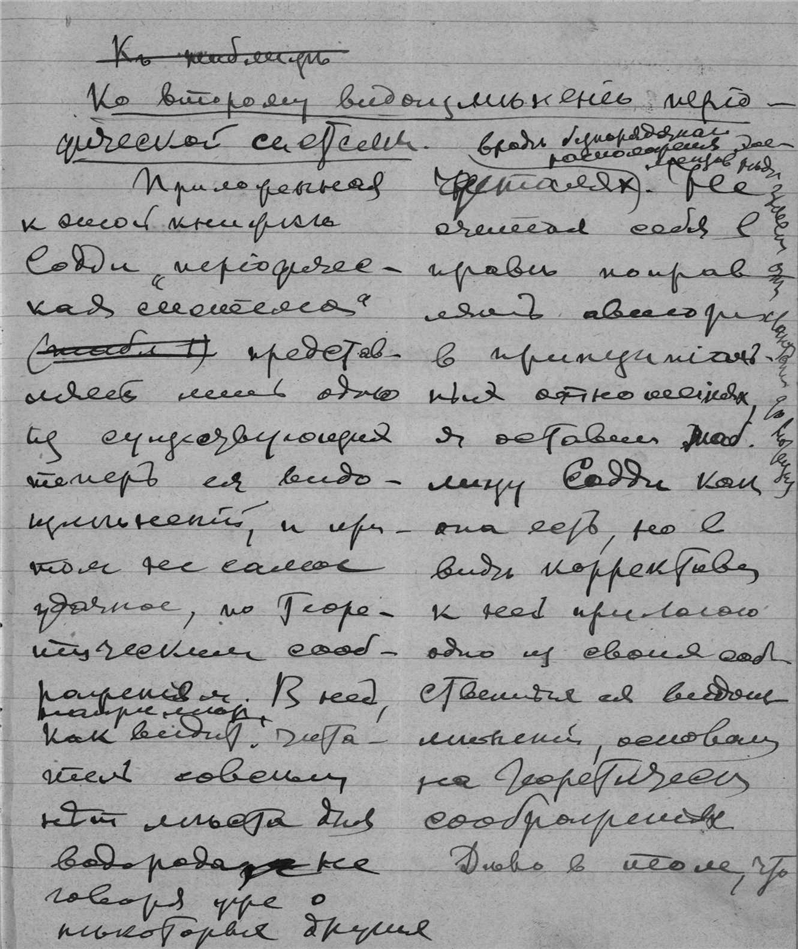 Къ таблицѣ
Ко второму видоизмѣненію періо-
дической системы.
Приложенная
к этой книжкѣ
Содди „періодичес-
кая система“
(табл 1) представ-
ляетъ лишь одно
из существующихъ
теперь ея видо-
измѣненій, и при-
том не самое
удачное, по теоре-
тическим сооб-
раженіям. В ней,
например,
как видит чита-
тель совсѣм
нѣт мѣста для
водорода не
говоря уже о
нѣкоторыхъ другихъ
вродѣ безпорядочнаго
расположенія
деталях). Не
считая себя в
правѣ поправ-
лять авторов
в принципіаль-
ных отношеніях,
я оставил таб.
лицу Содди как
она есть, но в
видѣ корректива
к ней прилагаю
одно из своих соб-
ственных ея видоиз-
мѣненій, основан
на теоретическ
соображеніях
Дѣло в том, что